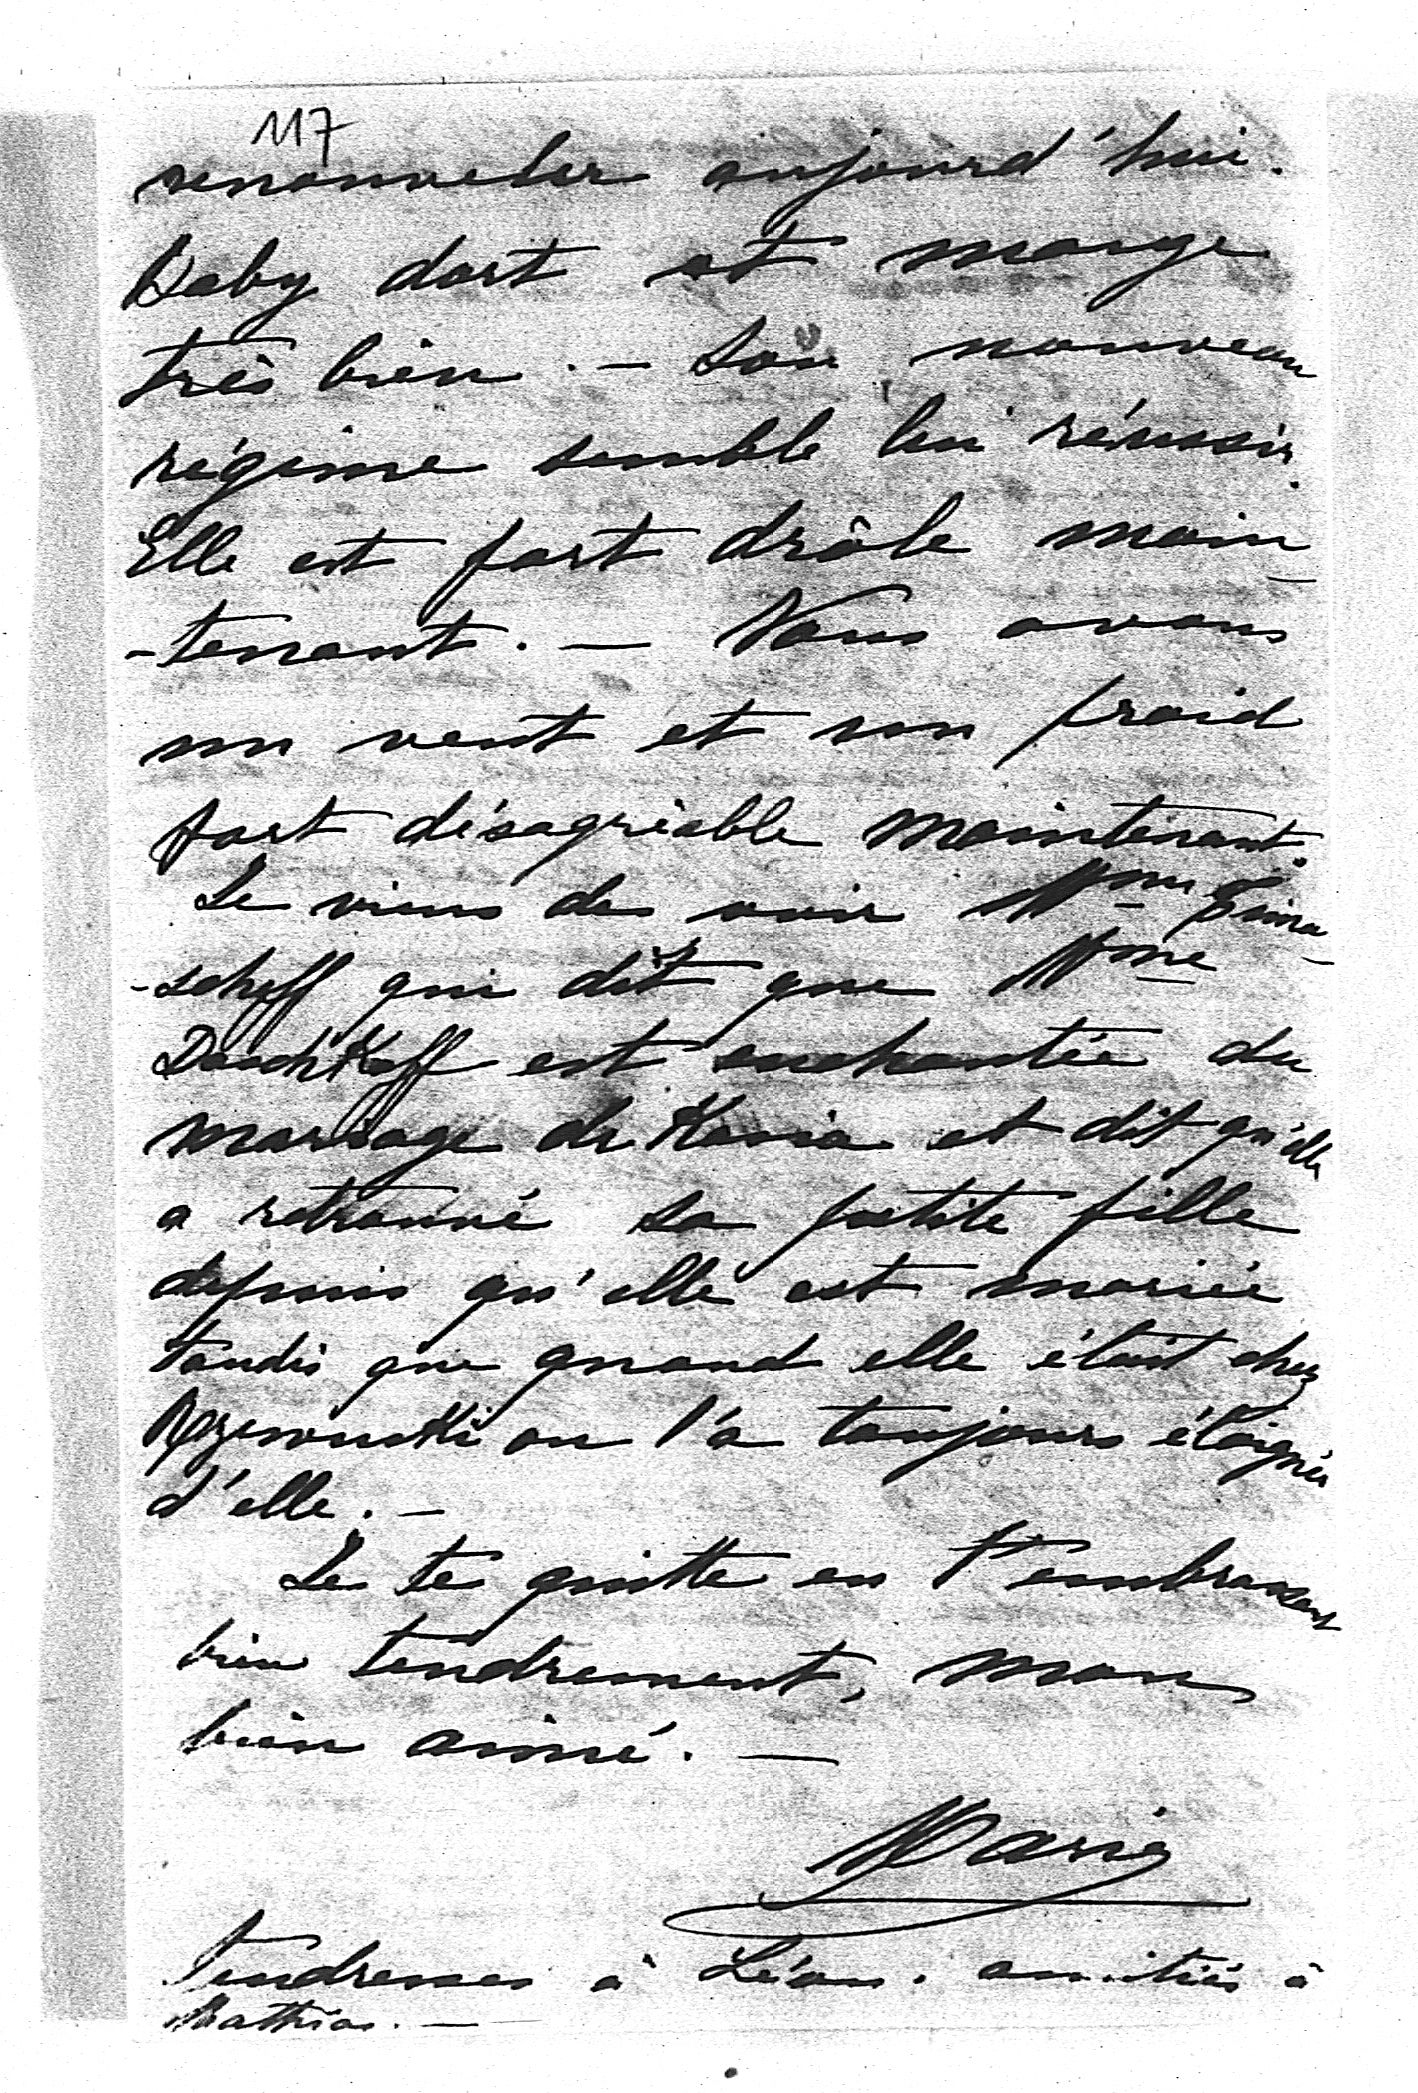 117
renouveler aujourd'hui.
Baby dort et mange
très bien. — Son nouveau
régime semble lui réussir.
Elle est fort drôle main-
-tenant. — Nous avons
un vent et un froid
fort désagréable maintenant.
Je viens de voir Mme
-scheff qui dit que Mme
Daschkoff est enchantée du
mariage de Kasia et dit qu'elle
a retrouvé sa petite fille
depuis qu'elle est mariée
tandis que quand elle était chez
Rzewuski on l'a toujours éloignée
d'elle. —
Je te quitte en t'embrassant
bien tendrement, mon
bien aimé. —
Marie
Tendresses à Léon. amitiés à
Mathias. —